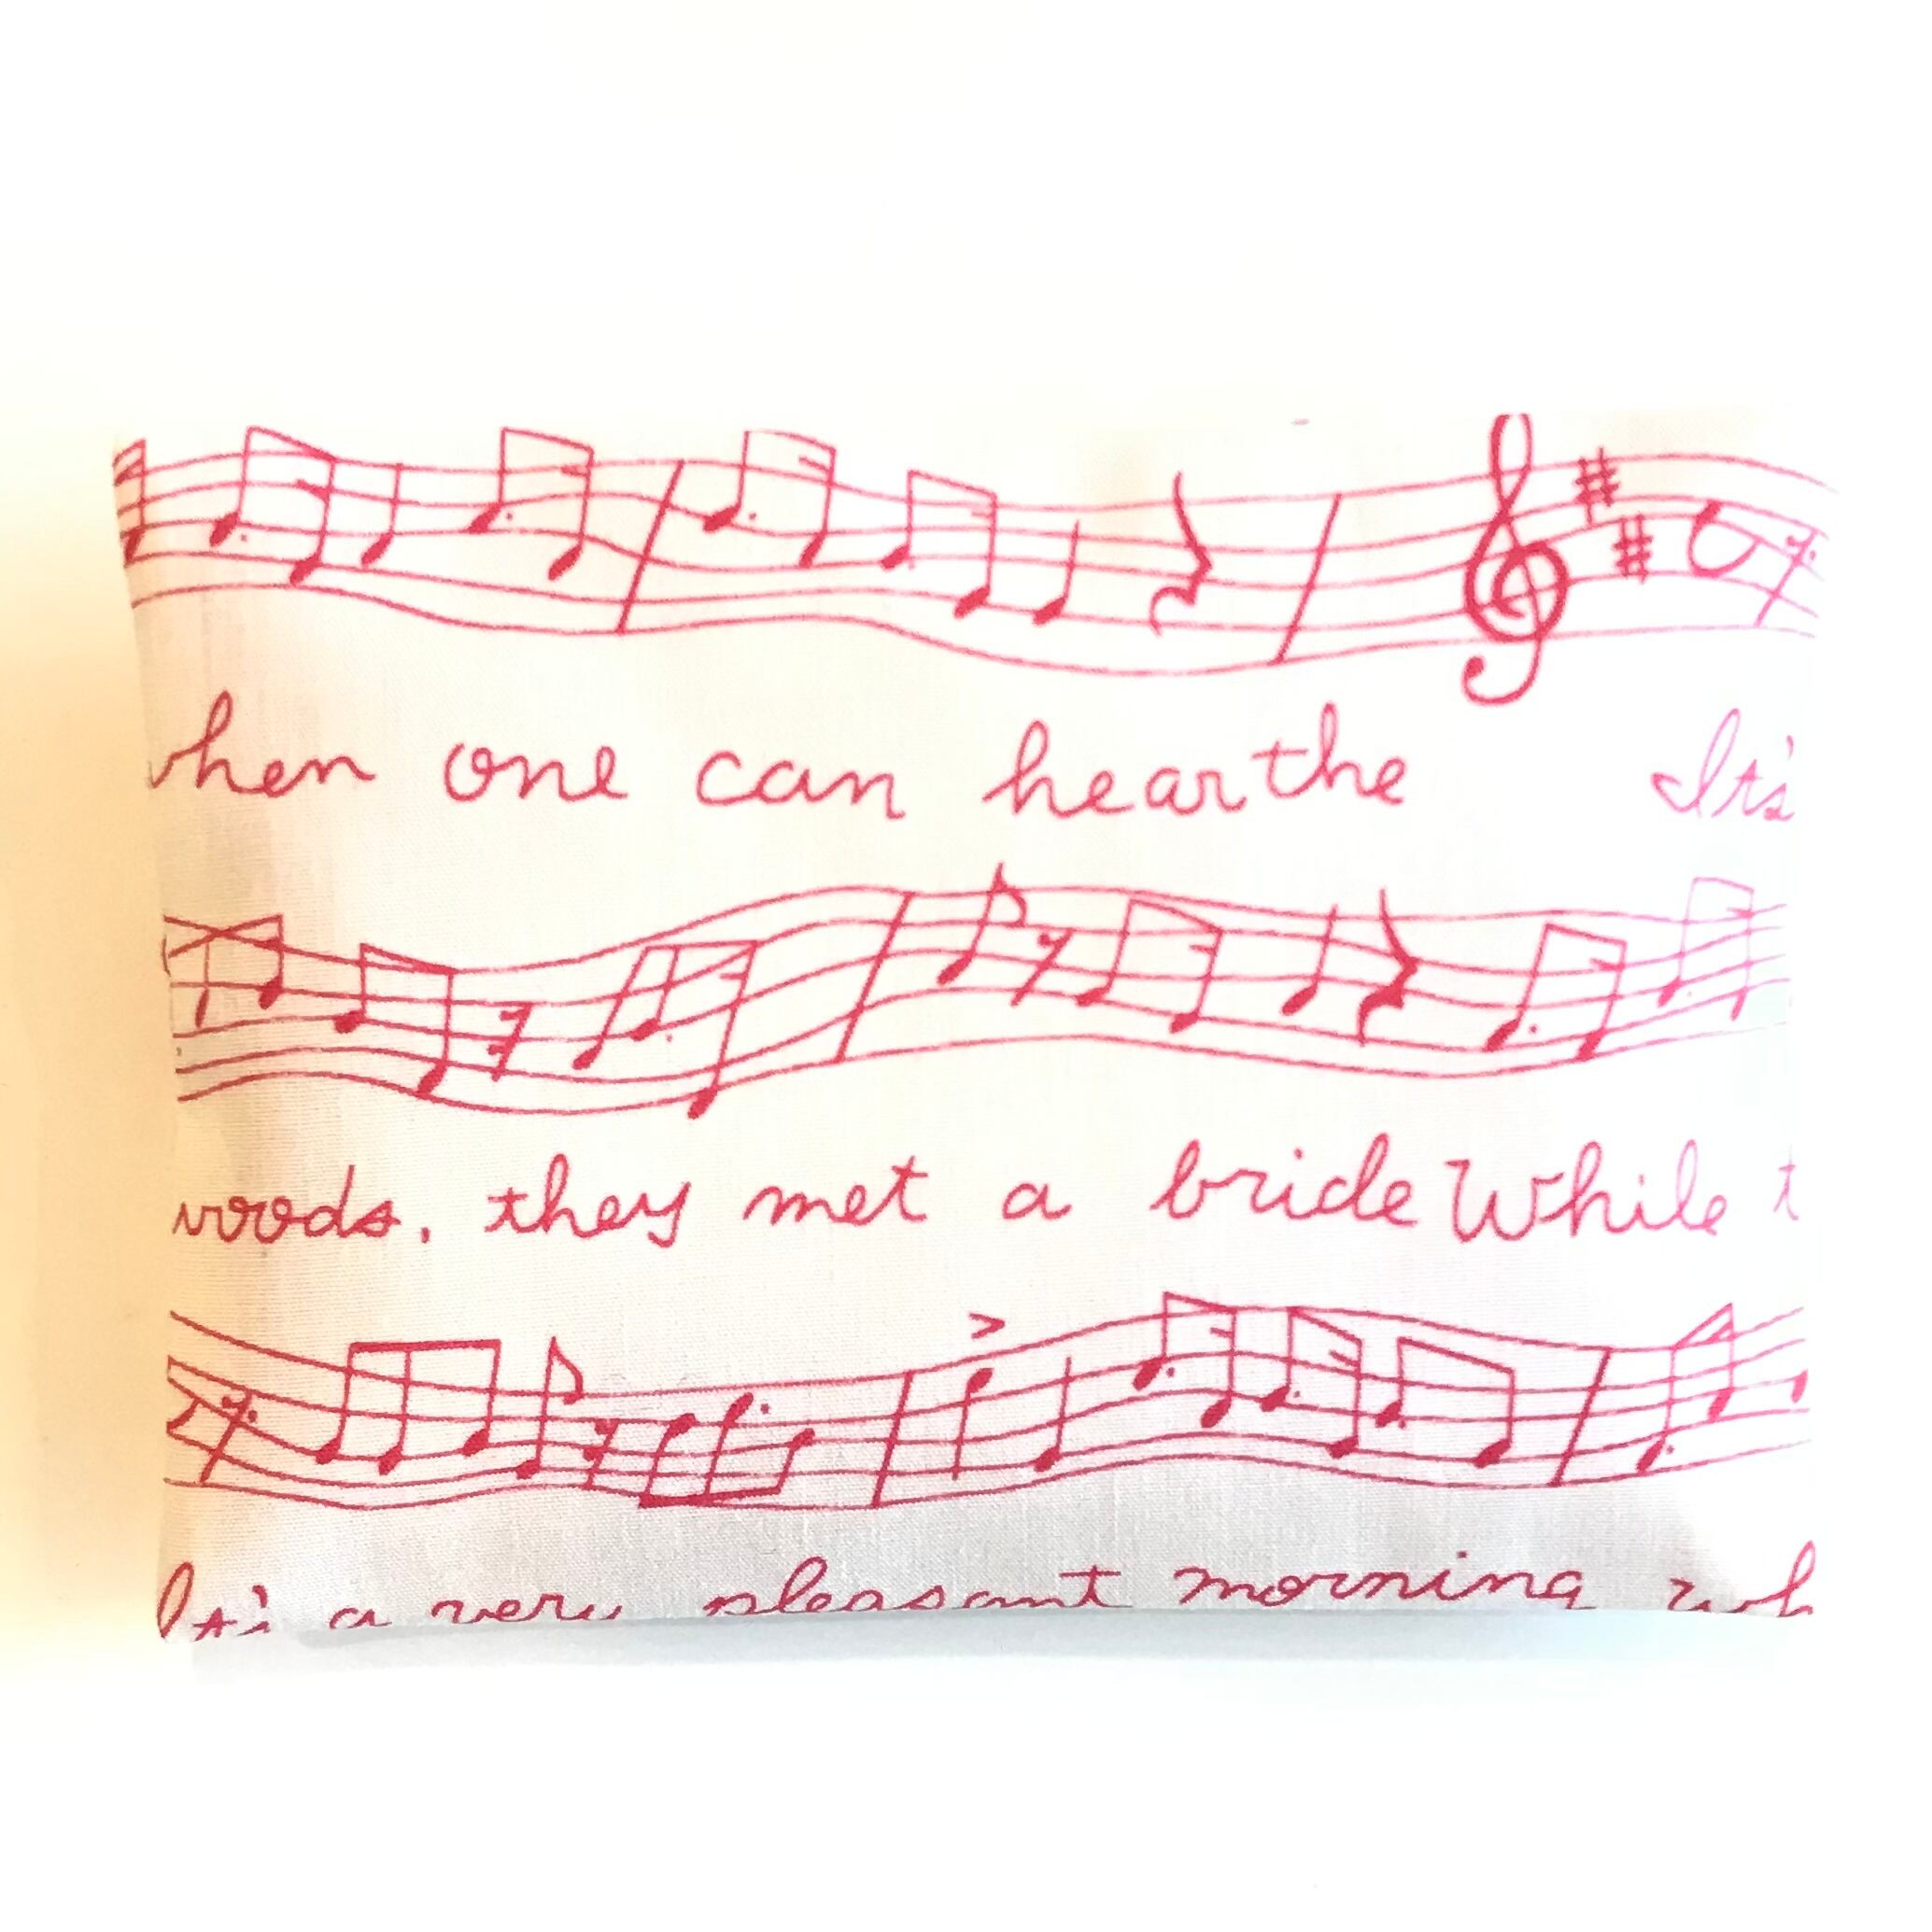 when one can hear the It's
woods. they met a bride While t
It's a very pleasant morning wh